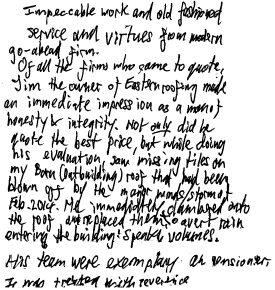 Impeccable work and old fashioned
service and virtues from modern
go-ahead firm.
Of all the firms who came to quote,
Jim the owner of Eastern roofing made
an immediate impression as a man of
honesty & integrity. Not only did he
quote the best price, but while doing
his evaluation, saw missing tiles on
my Barn (outbuilding) roof that had been
blown off by the major winds/storm of
Feb. 2014. He immediately clambered onto
the roof, and replaced them to avert rain
entering the building. Speaks volumes.
His team were exemplary. As pensioners
It was treated with reverence